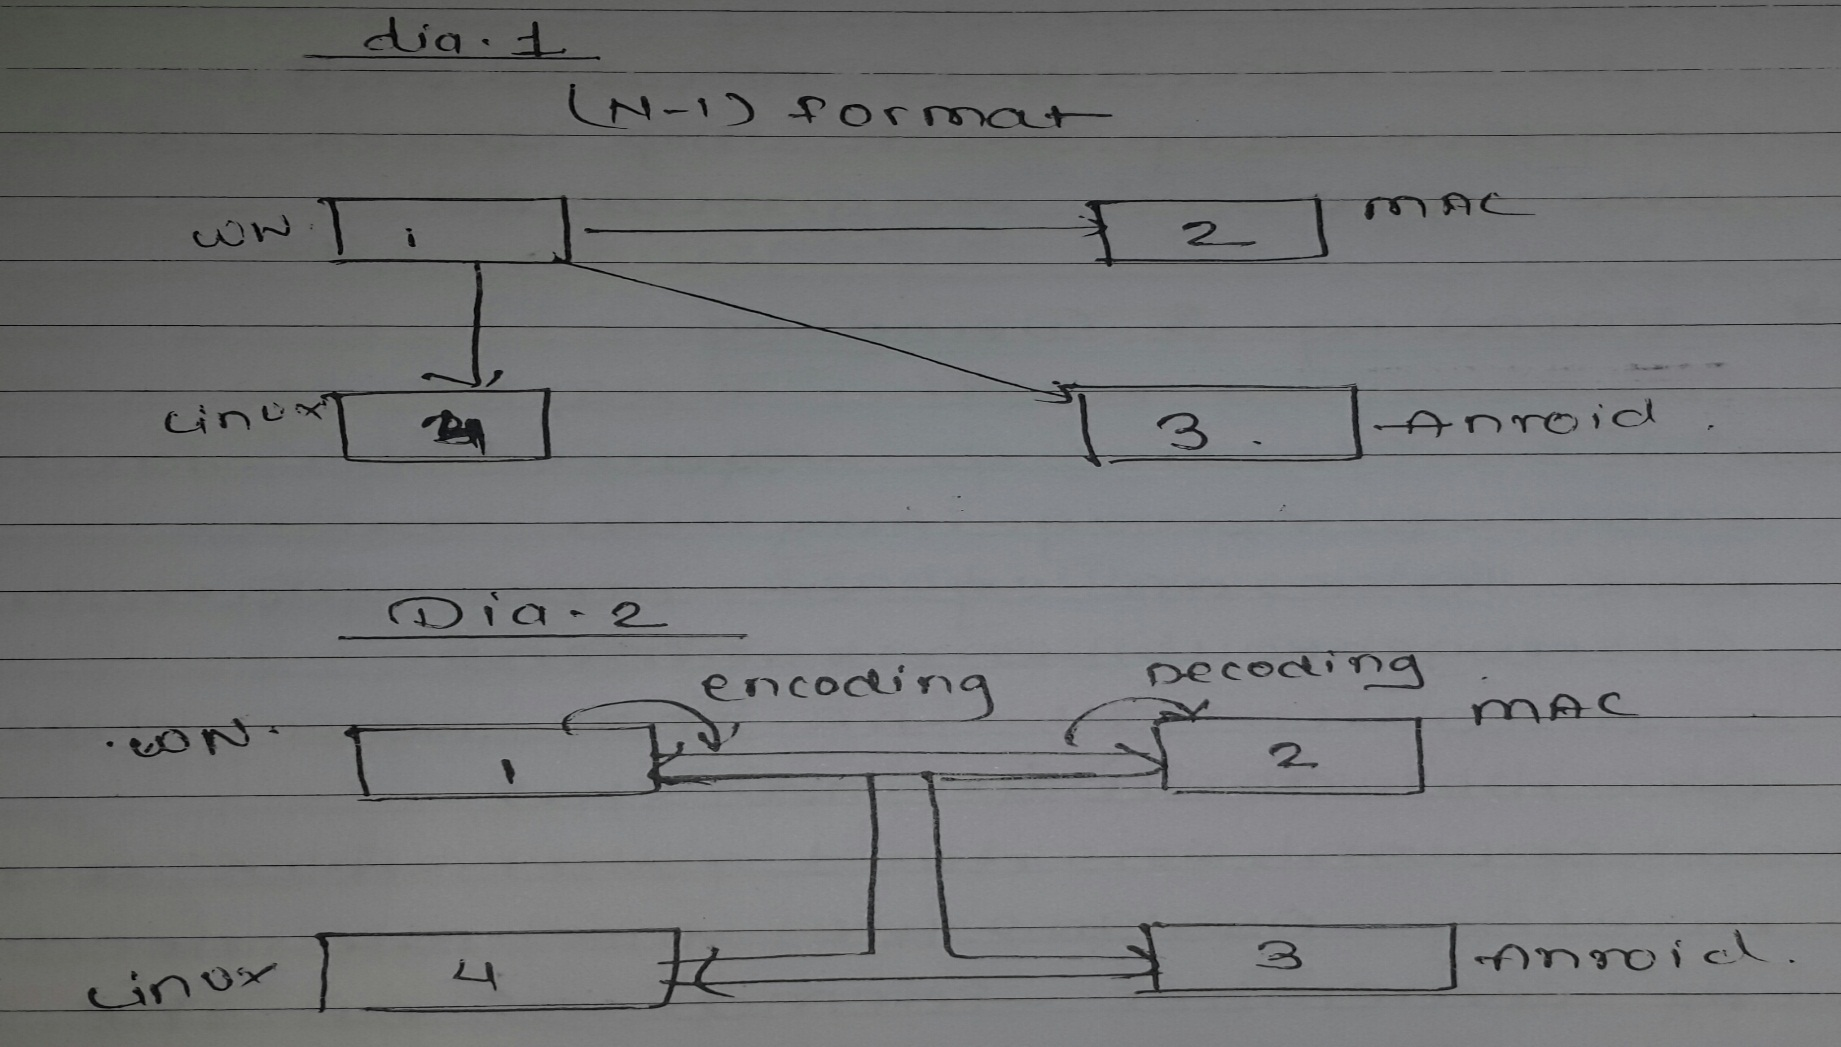 dia. 1
(N-1) format
WIN. 1 2 MAC
Linux 4 3. Anroid.
Dia-2
encoding Decoding
WIN. 1 2 MAC
Linux 4 3 Anroid.